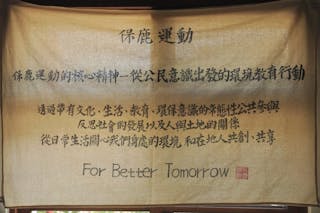 保鹿運動
保鹿運動的核心精神—從公民意識出發的環境教育行動
透過帶有文化、生活、教育、環保意識的常態性公共參與
反思社會的發展以及人與土地的關係
從日常生活關心我們身處的環境,和在地人共創、共享
For Better Tomorrow